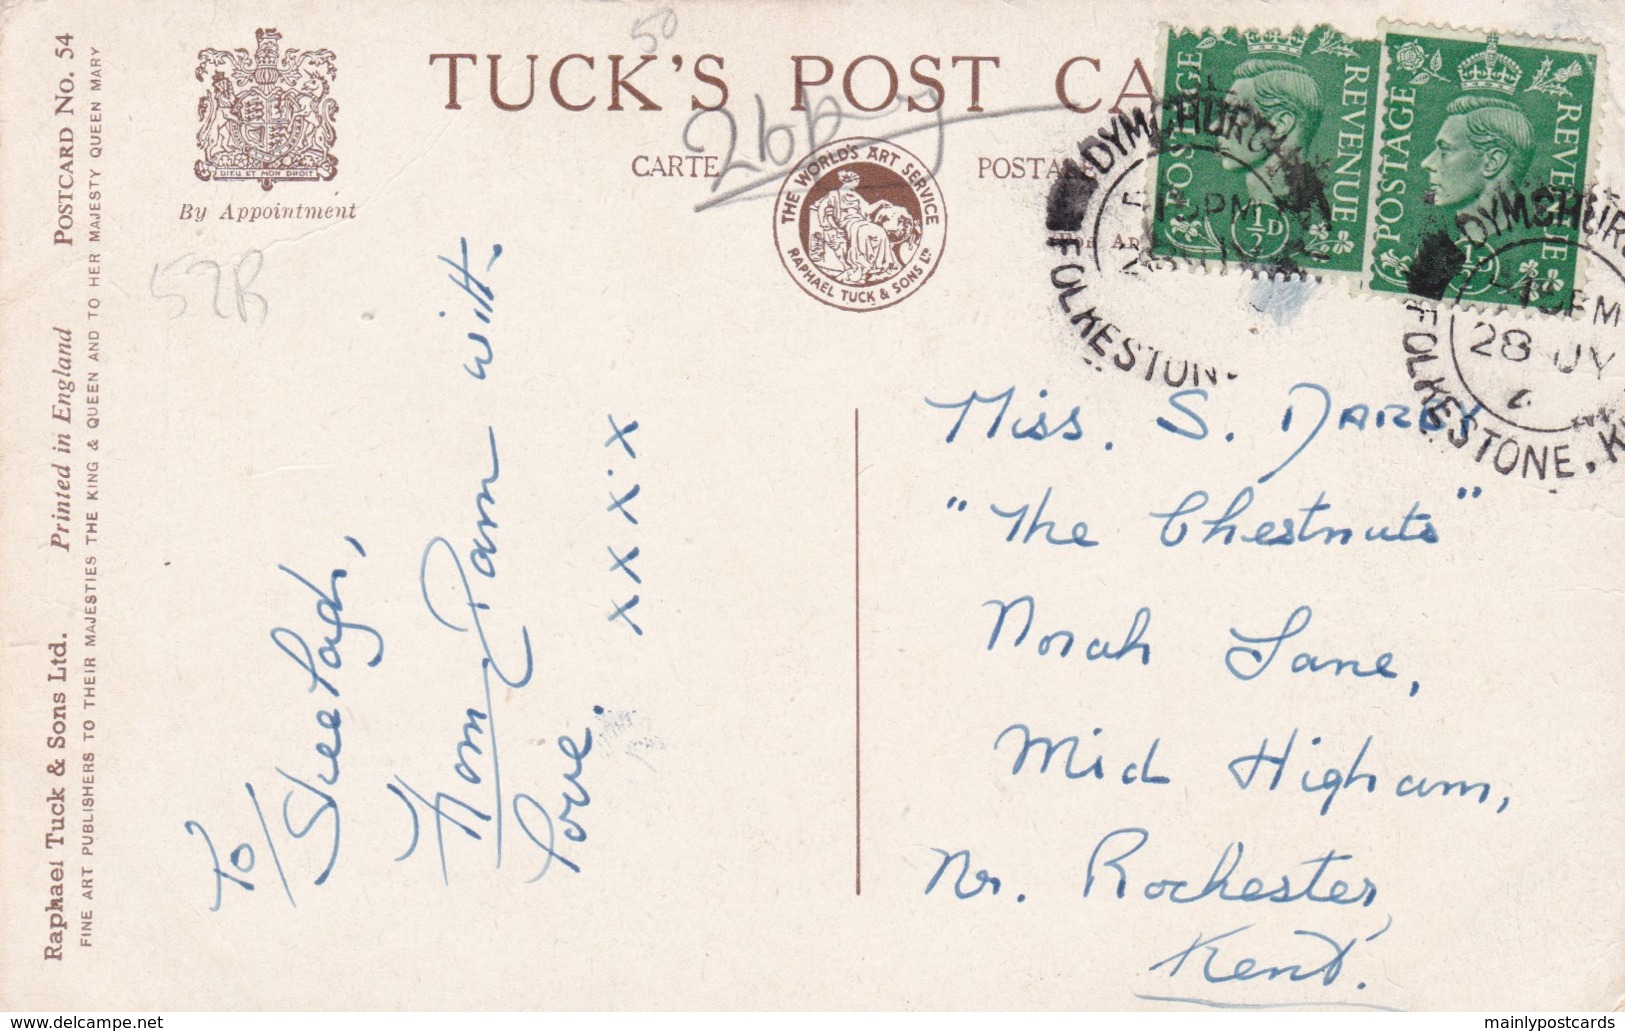 TUCK'S POST CA
CARTE POSTA
50
26
52B
DIEU ET MON DROIT
By Appointment
THE WORLD'S ART SERVICE
RAPHAEL TUCK & SONS LTD
POSTAGE REVENUE
½D
POSTAGE REVENUE
DYMCHURCH
PM
28
FOLKESTONE
DYMCHURCH
PM
28 JY
FOLKESTONE, K
Raphael Tuck & Sons Ltd. Printed in England POSTCARD No. 54
FINE ART PUBLISHERS TO THEIR MAJESTIES THE KING & QUEEN AND TO HER MAJESTY QUEEN MARY
To/
From Pam with
love. xxxx.x
Miss. S. DARBY
"The Chestnuts"
Norah Lane,
Mid Higham,
Nr. Rochester,
Kent.
delcampe.net
mainlypostcards